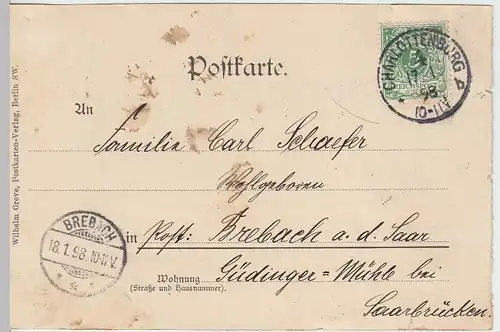 Postkarte.
CHARLOTTENBURG
17.1
98
10-11V
An
Familie Carl Schaefer
Wohlgeboren
in Post: Brebach a. d. Saar
Wohnung
(Straße und Hausnummer).
Güdinger=Mühle bei
Saarbrücken.
BREBACH
18.1.98.10-11V.
Wilhelm Greve, Postkarten-Verlag, Berlin SW.